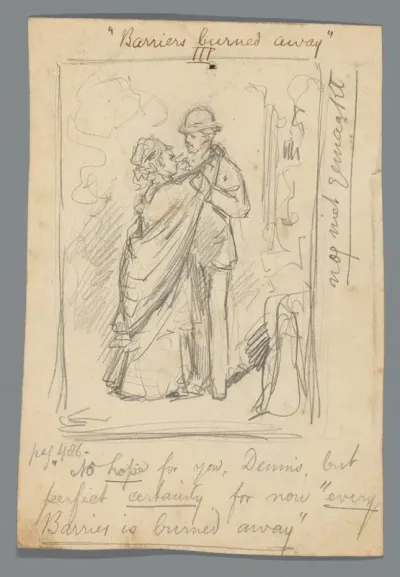 "Barriers burned away"
III
nog niet gemaakt.
pag 486.
"No hope for you, Dennis, but
perfect certainty for now "every
Barrier is burned away"